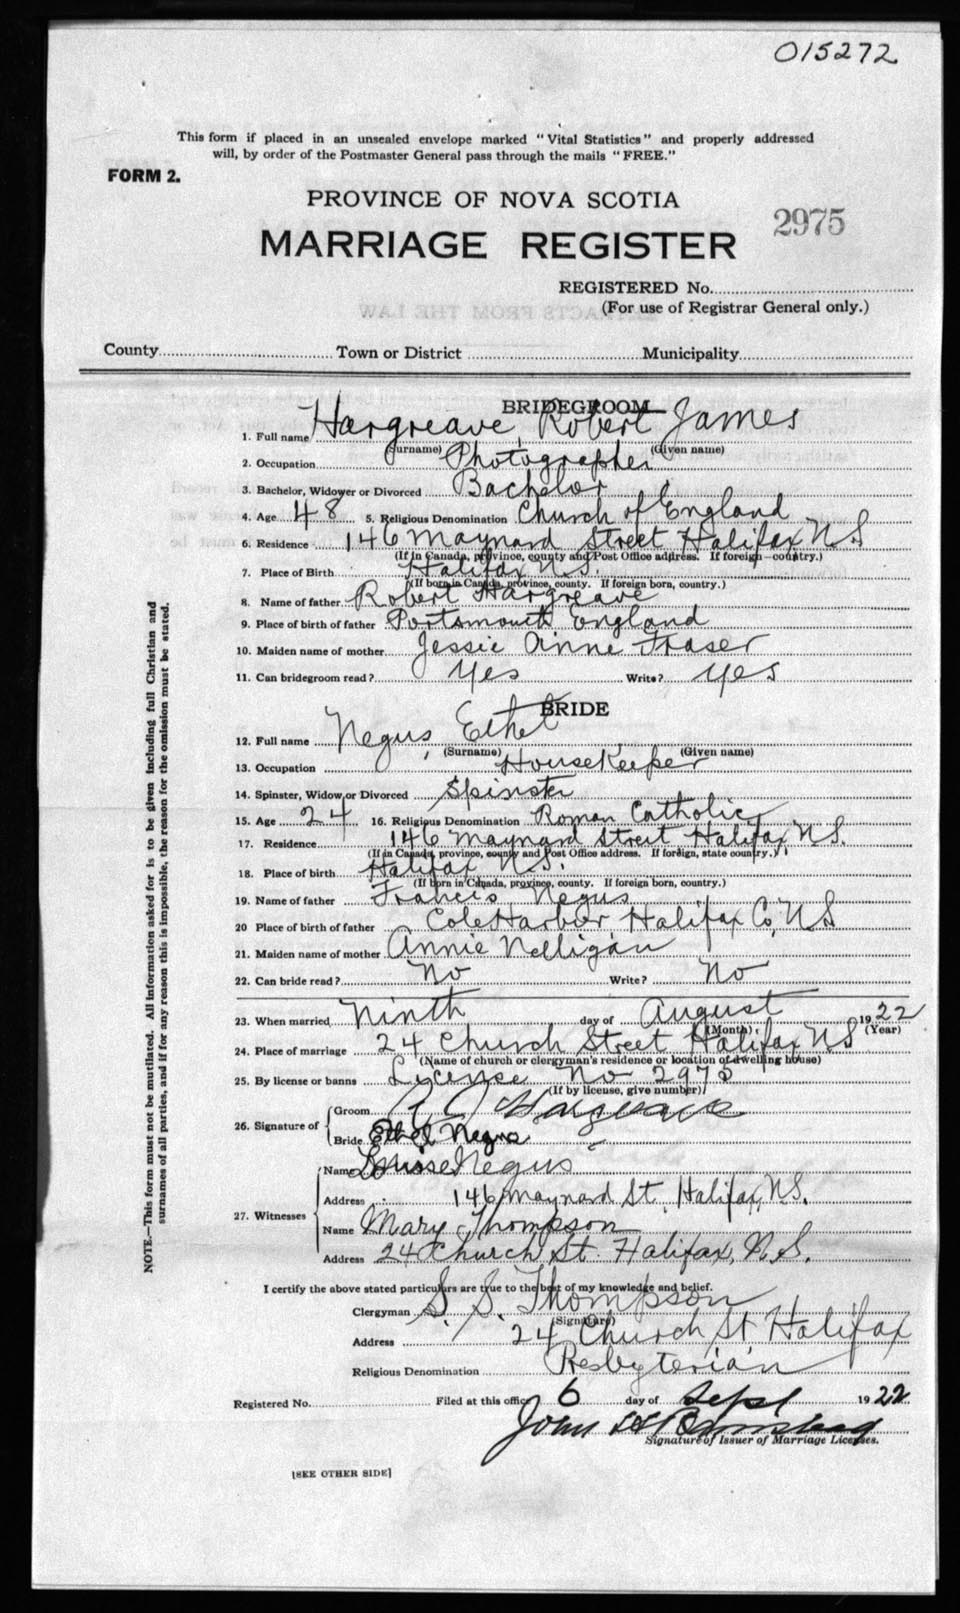 015272
This form if placed in an unsealed envelope marked "Vital Statistics" and properly addressed
will, by order of the Postmaster General pass through the mails "FREE."
FORM 2.
PROVINCE OF NOVA SCOTIA
2975
MARRIAGE REGISTER
REGISTERED No.
(For use of Registrar General only.)
County Town or District Municipality
BRIDEGROOM
1. Full name Hargreave, Robert James
(Surname) (Given name)
2. Occupation Photographer
3. Bachelor, Widower or Divorced Bachelor
4. Age 48 5. Religious Denomination Church of England
6. Residence 146 Maynard Street Halifax N S
(If in Canada, province, county and Post Office address. If foreign—country.)
7. Place of Birth Halifax N.S.
(If born in Canada, province, county. If foreign born, country.)
8. Name of father Robert Hargreave
9. Place of birth of father Portsmouth England
10. Maiden name of mother Jessie Anne Fraser
11. Can bridegroom read? Yes Write? Yes
BRIDE
12. Full name Negus, Ethel
(Surname) (Given name)
13. Occupation HouseKeeper
14. Spinster, Widow or Divorced Spinster
15. Age 24 16. Religious Denomination Roman Catholic
17. Residence 146 Maynard Street Halifax N.S.
(If in Canada, province, county and Post Office address. If foreign, state country.)
18. Place of birth Halifax N.S.
(If born in Canada, province, county. If foreign born, country.)
19. Name of father Francis Negus
20 Place of birth of father Cole Harbor Halifax Co, N S
21. Maiden name of mother Annie Nelligan
22. Can bride read? No Write? No
23. When married Ninth day of August 1922
(Month) (Year)
24. Place of marriage 24 Church Street Halifax N S
(Name of church or clergyman's residence or location of dwelling house)
25. By license or banns License No 2975
(If by license, give number)
26. Signature of Groom R J Hargreave
Bride Ethel Negus
27. Witnesses Name Louisse Negus
Address 146 Maynard St. Halifax, N.S.
Name Mary Thompson
Address 24 Church St. Halifax, N.S.
I certify the above stated particulars are true to the best of my knowledge and belief.
Clergyman S. S. Thompson
(Signature)
Address 24 Church St Halifax
Religious Denomination Presbyterian
Registered No. Filed at this office 6 day of Sept 1922
John
Signature of Issuer of Marriage Licenses.
[SEE OTHER SIDE]
NOTE.—This form must not be mutilated. All information asked for is to be given including full Christian and
surnames of all parties, and if for any reason this is impossible, the reason for the omission must be stated.